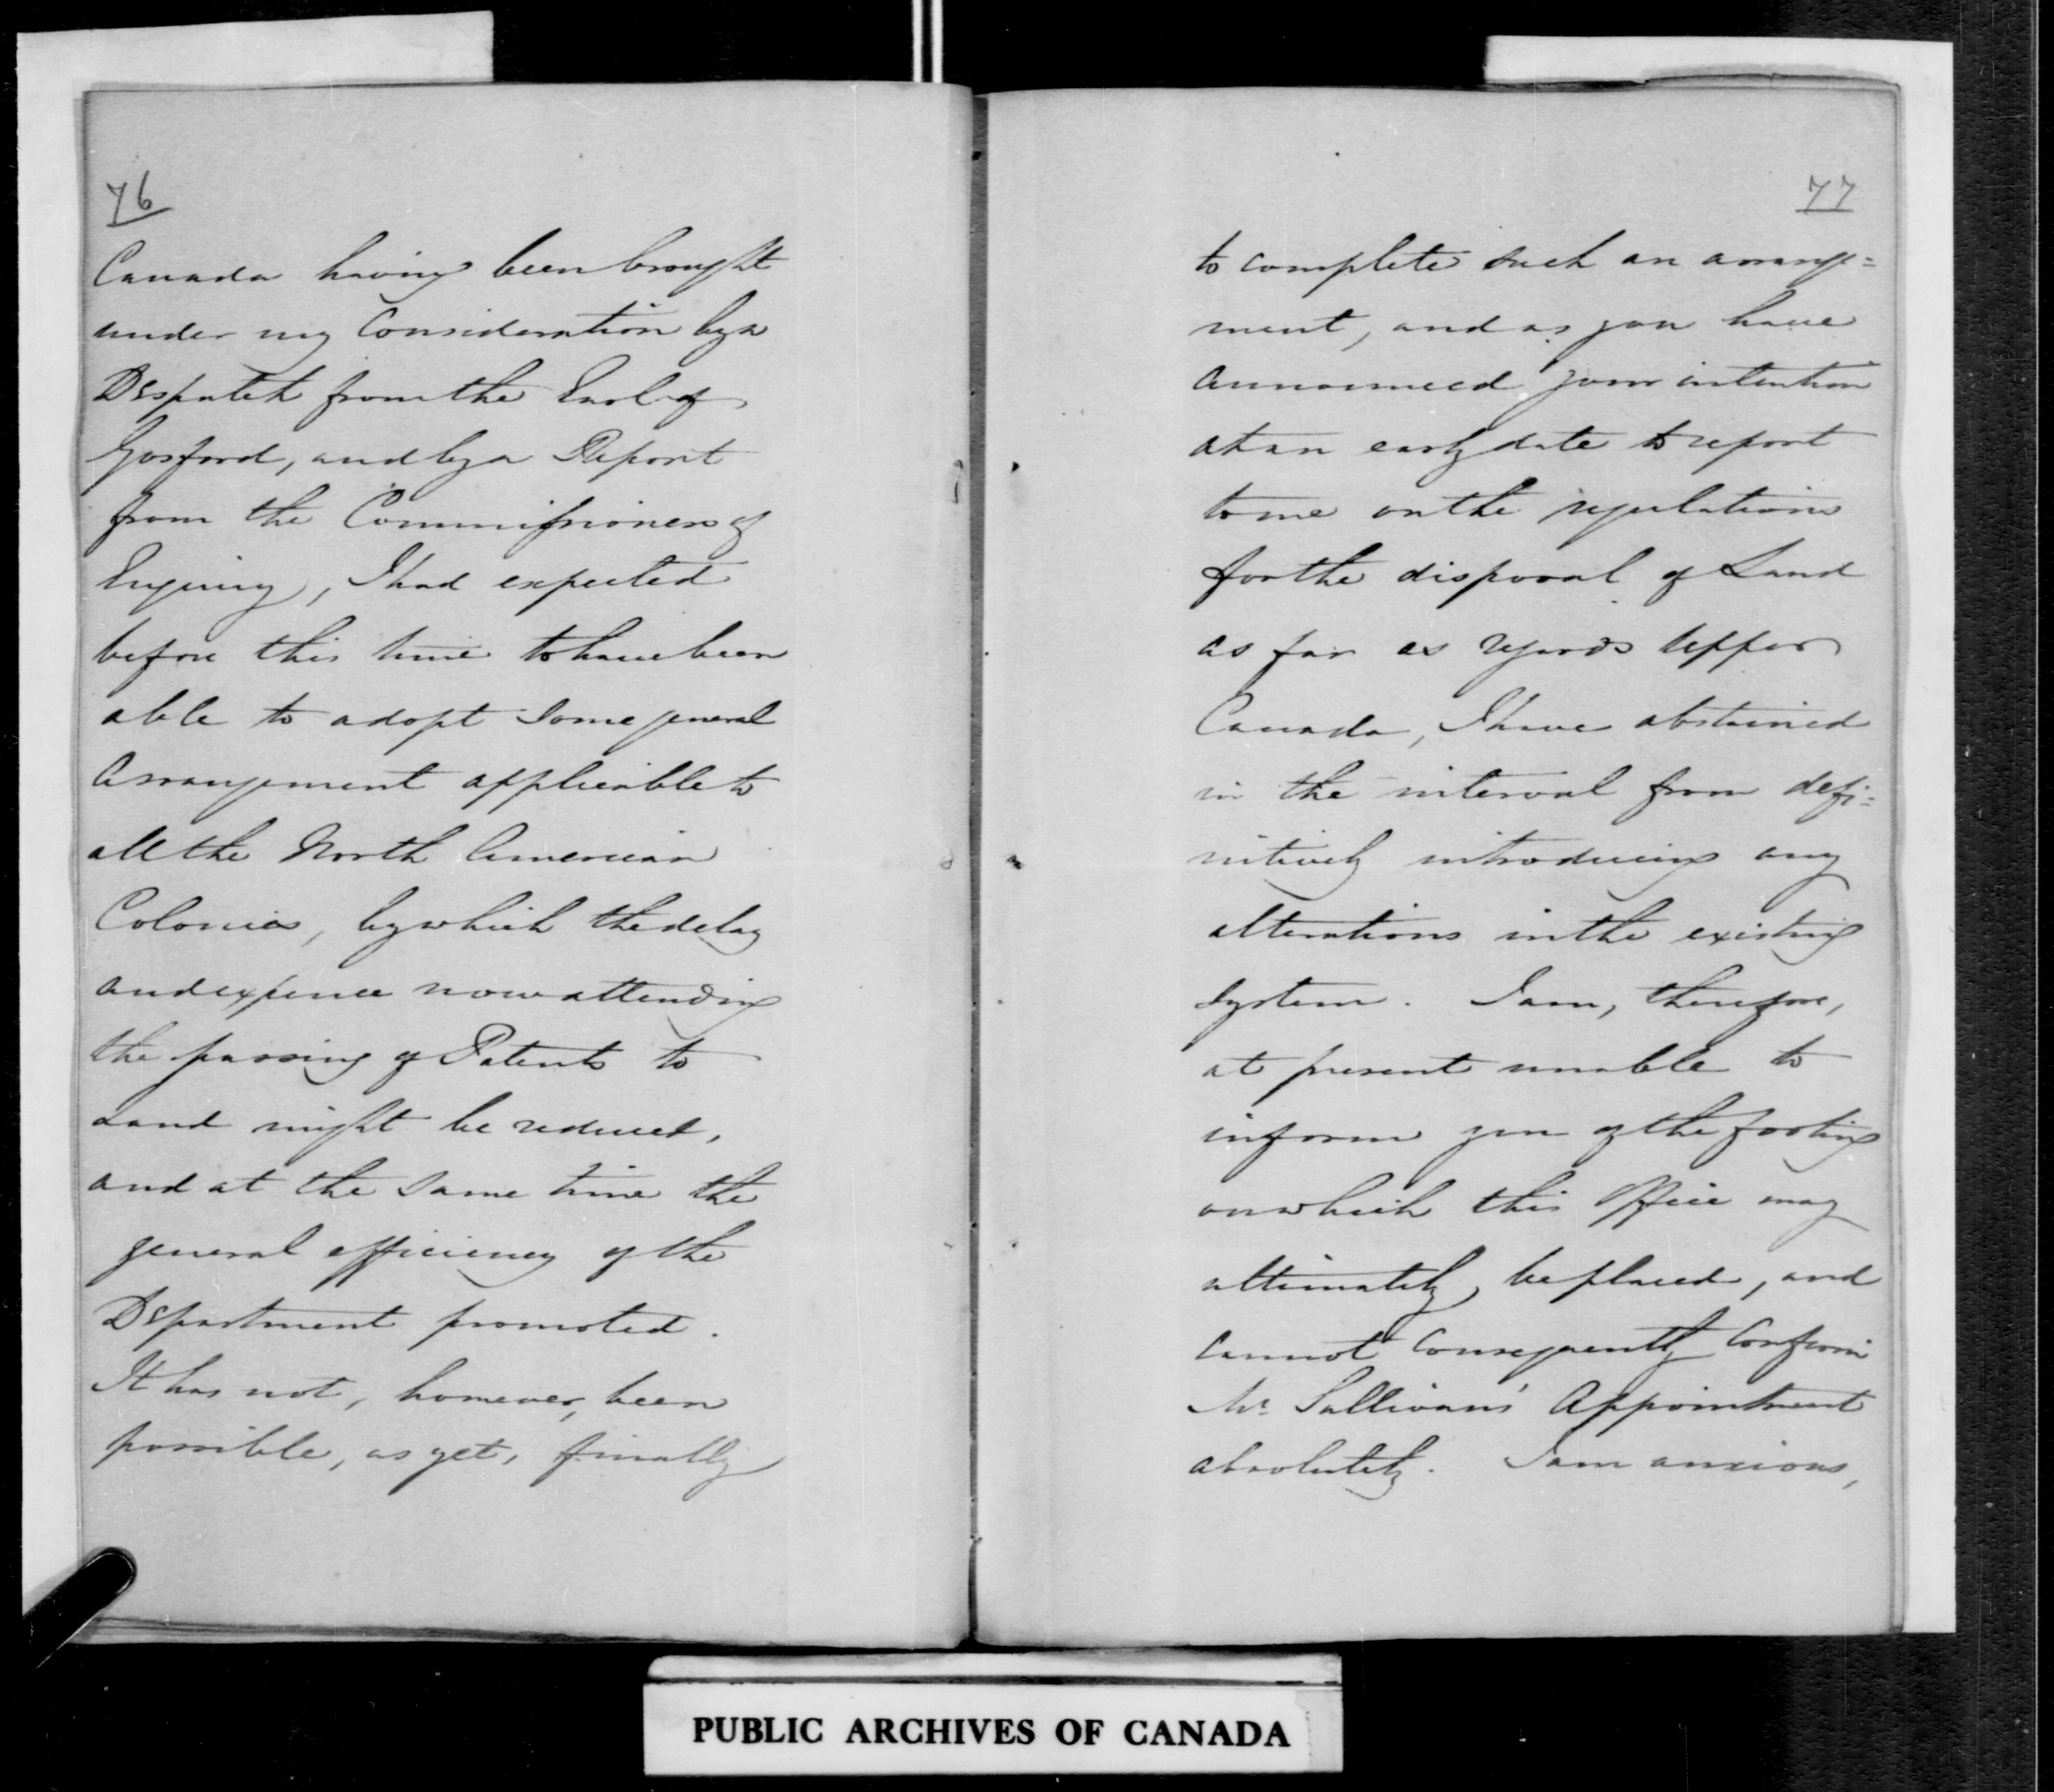 76
Canada having been brought
under my Consideration by a
Despatch from the Earl of
Gosford, and by a Report
from the Commissioners of
Enquiry, I had expected
before this time to have been
able to adopt some general
Arrangement applicable to
all the North American
Colonies, by which the delay
and expence now attending
the passing of Patents to
Land might be reduced,
and at the same time the
general efficiency of the
Department promoted.
It has not, however, been
possible, as yet, finally
77
to complete such an arrange=
ment, and as you have
announced your intention
at an early date to report
to me on the regulations
for the disposal of Land
as far as regards Upper
Canada, I have abstained
in the interval from defi=
nitively introducing any
alterations in the existing
System. I am, therefore,
at present unable to
inform you of the footing
on which this Office may
ultimately be placed, and
cannot consequently confirm
Mr. Sullivan's Appointment
absolutely. I am anxious,
PUBLIC ARCHIVES OF CANADA